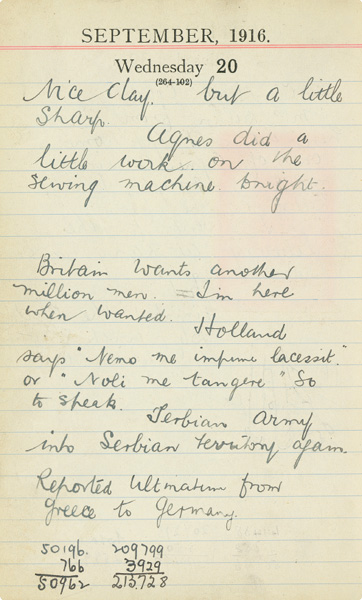 SEPTEMBER, 1916.
Wednesday 20
(264-102)
Nice day. but a little
Sharp.
Agnes did a
little work on the
sewing machine tonight.
Britain wants another
million men. = I'm here
when wanted.
Holland
says "Nemo me impune lacessit."
or "Noli me tangere" So
to speak.
Serbian army
into Serbian territory again.
Reported Ultimatum from
Greece to Germany.
50196. 209799
766 3929
50962 213728